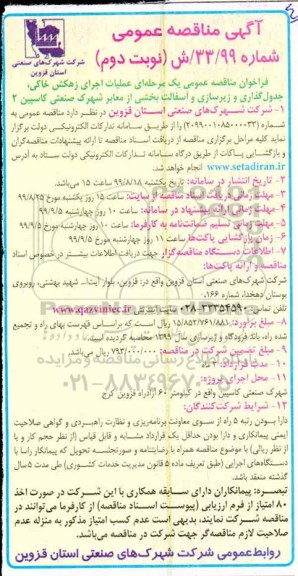 آگهی مناقصه عمومی
شماره ۳۳/۹۹/ش (نوبت دوم)
شرکت شهرک‌های صنعتی
استان قزوین
فراخوان مناقصه عمومی یک مرحله‌ای عملیات اجرای زهکش خاکی،
جدول‌گذاری و زیرسازی و آسفالت بخشی از معابر شهرک صنعتی کاسپین ۲
۱- شرکت شهرک‌های صنعتی استان قزوین در نظر دارد مناقصه عمومی به
شماره (۲۰۹۹۰۰۱۰۸۵۰۰۰۰۳۳) را از طریق سامانه تدارکات الکترونیکی دولت برگزار
نماید کلیه مراحل برگزاری مناقصه از دریافت اسناد مناقصه تا ارائه پیشنهادات مناقصه‌گران
و بازگشایی پاکات از طریق درگاه سامانه تدارکات الکترونیکی دولت ستاد به آدرس
www.setadiran.ir انجام خواهد شد.
۲- تاریخ انتشار در سامانه: تاریخ یکشنبه ۹۹/۸/۱۸ ساعت ۱۵ می‌باشد.
۳- مهلت زمانی دریافت اسناد مناقصه از سایت: ساعت ۱۵ روز یکشنبه مورخ ۹۹/۸/۲۵
۴- مهلت زمانی ارائه پیشنهاد در سامانه: ساعت ۱۰ روز چهارشنبه ۹۹/۹/۵
۵- مهلت زمانی تسلیم ضمانت‌نامه به کارفرما: ساعت ۱۰ روز چهارشنبه ۹۹/۹/۵
۶- زمان بازگشایی پاکت‌ها ساعت ۱۱ روز چهارشنبه مورخ ۹۹/۹/۵
۷- اطلاعات دستگاه مناقصه‌گزار جهت دریافت اطلاعات بیشتر در خصوص اسناد
مناقصه و ارائه پاکت‌ها:
شرکت شهرک‌های صنعتی استان قزوین واقع در: قزوین، بلوار آیت‌ا... شهید بهشتی، روبروی
بوستان دهخدا، شماره ۱۶۶.
تلفن تماس: ۳۳۳۵۴۵۹۰-۰۲۸ www.qazviniec.ir
۸- مبلغ برآورد: ۱۵/۸۵۲/۷۶۱/۸۸۱ ریال است که براساس فهرست بهای راه و تجمیع
شده راه، باند فرودگاه و زیرسازی سال ۱۳۹۹ محاسبه گردیده است.
۹- مبلغ تضمین شرکت در مناقصه: ۷۹۳/۰۰۰/۰۰۰ ریال می‌باشد.
۱۰- مدت قرارداد: ماه
۱۱- محل اجرای پروژه:
شهرک صنعتی کاسپین واقع در کیلومتر ۶۰ آزادراه قزوین کرج
۱۲- شرایط شرکت‌کنندگان:
دارا بودن رتبه ۵ راه از سوی معاونت برنامه‌ریزی و نظارت راهبردی و گواهی صلاحیت
ایمنی پیمانکاری و دارا بودن حداقل یک قرارداد مشابه و قابل قیاس (از نظر حجم کار و یا
از نظر ریالی) با موضوع مناقصه همراه با رضایتنامه و صورتجلسه تحویل که پیمانکار راسا با
دستگاه‌های اجرایی (طبق تعریف ماده ۵ قانون مدیریت خدمات کشوری) طی مدت ۵ سال
گذشته منعقد باشد.
تبصره: پیمانکاران دارای سابقه همکاری با این شرکت در صورت اخذ
۸۰ امتیاز از فرم ارزیابی (پیوست اسناد مناقصه) از کارفرما می‌توانند در
مناقصه شرکت نمایند، بدیهی است عدم کسب امتیاز مذکور به منزله عدم
صلاحیت لازم مناقصه‌گر جهت شرکت در مناقصه می‌باشد.
روابط عمومی شرکت شهرک‌های صنعتی استان قزوین